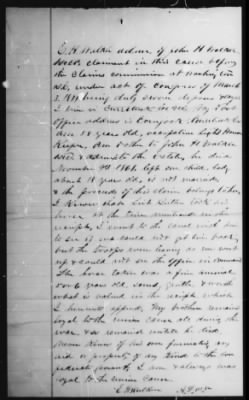 G. H. Walker admr. of John H Walker
decd claimant in this case before
the Claims commission at Washington
D.C. under act of Congress of March
3. 1871 being duly sworn deposes & says
I live in Currituck Co N.C. My Post
office address is Coinjock. Am
over 18 years old, occupation Light House
Keeper, Am brother to John H Walker
decd & admr of the estate, he died
November 1881. left one child, boy
about 18 years old, & not married
& the proceeds of this claim belongs to him
I know that
horse at the time mentioned in the
receipts, I went to the canal with him
to see if we could not get him back,
but the troops were leaving as we went
up & could not see the officer in command
The horse taken was a fine animal
5 or 6 years old, sound, gentle & worth
what is stated in the receipt which
I hereunto append, My brother remained
loyal to the union cause all during the
war, & so remained until he died
Never knew of his ever furnishing any
aid or property of any kind to the con
federate I am & always was
loyal to the union cause